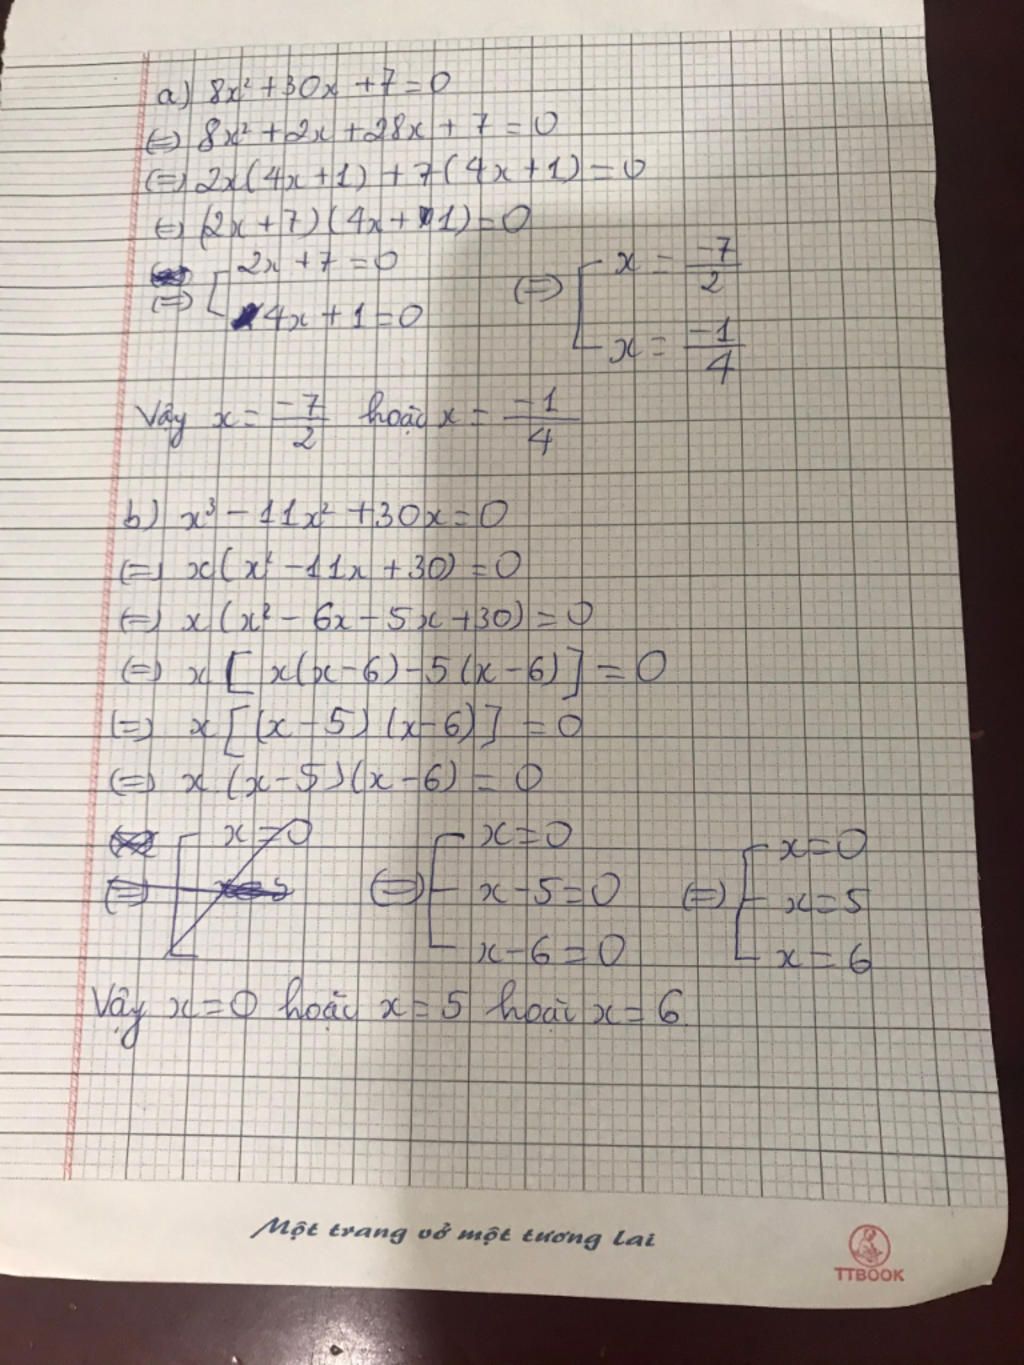 a) 8x² + 30x + 7 = 0
(=) 8x² + 2x + 28x + 7 = 0
(=) 2x(4x + 1) + 7(4x + 1) = 0
(=) (2x + 7)(4x + 1) = 0
(=) [ 2x + 7 = 0 (=) [ x = -7/2
4x + 1 = 0 x = -1/4
Vậy x = -7/2 hoặc x = -1/4
b) x³ - 11x² + 30x = 0
(=) x(x² - 11x + 30) = 0
(=) x(x² - 6x - 5x + 30) = 0
(=) x[x(x - 6) - 5(x - 6)] = 0
(=) x[(x - 5)(x - 6)] = 0
(=) x.(x - 5)(x - 6) = 0
x = 0 x = 0 x = 0
(=) (=) x - 5 = 0 (=) x = 5
x - 6 = 0 x = 6
Vậy x = 0 hoặc x = 5 hoặc x = 6
Một trang vở một tương lai
TTBOOK